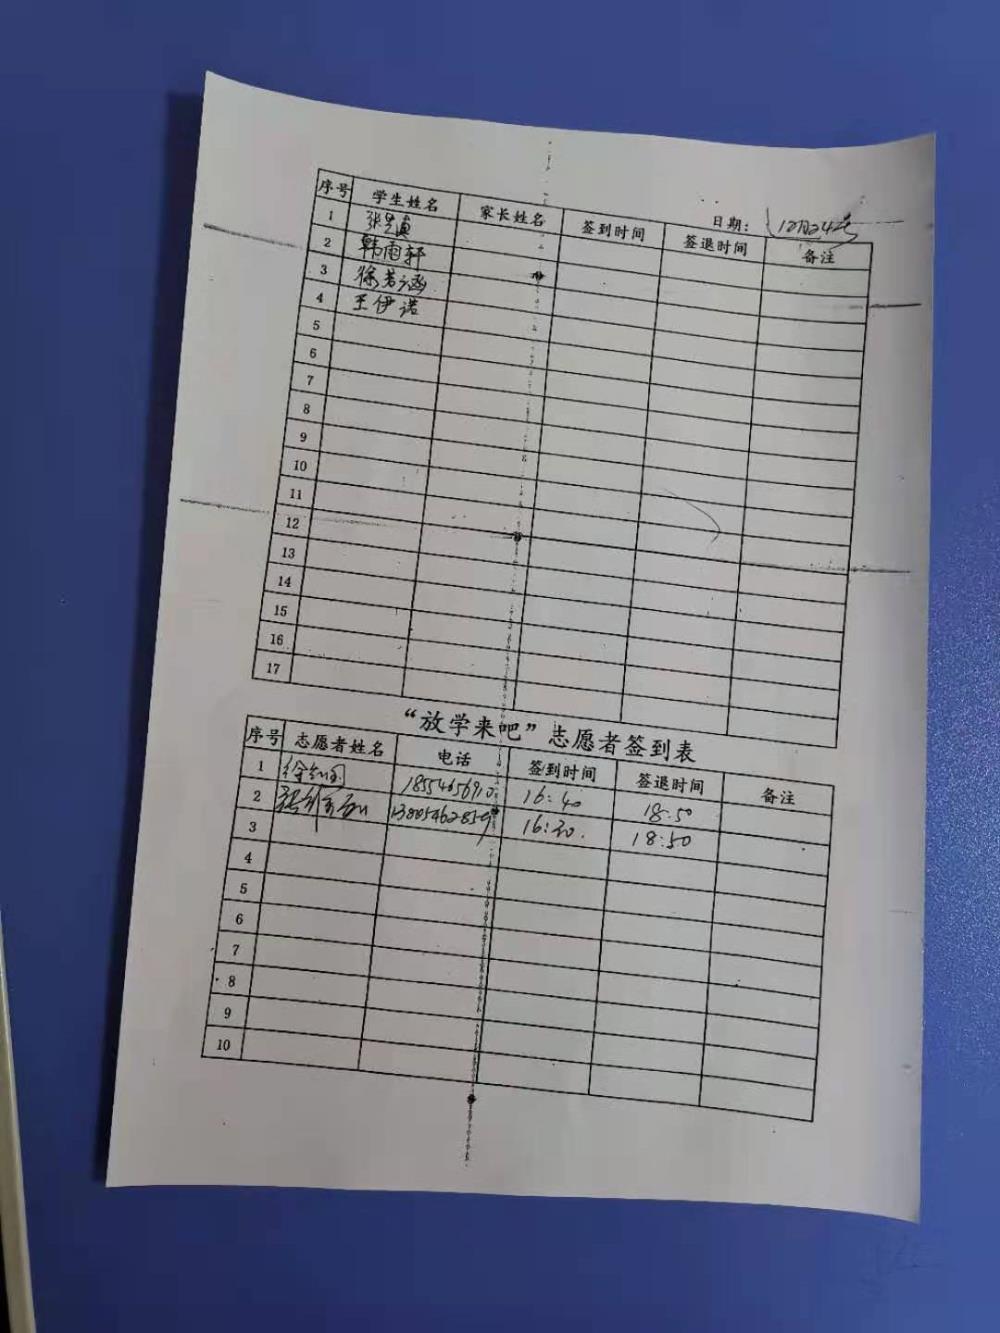 日期：12月24号
序号 学生姓名 家长姓名 签到时间 签退时间 备注
1
2 韩雨轩
3 徐若涵
4 王伊诺
5
6
7
8
9
10
11
12
13
14
15
16
17
“放学来吧”志愿者签到表
序号 志愿者姓名 电话 签到时间 签退时间 备注
1 16:40 18:50
2 13805462859 16:30. 18:50
3
4
5
6
7
8
9
10